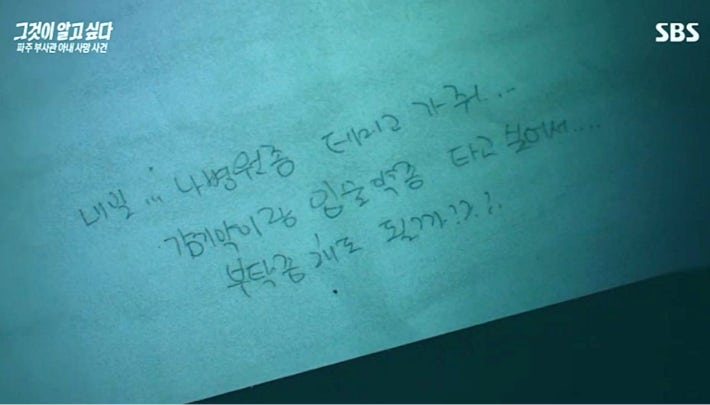 그것이 알고 싶다
파주 부사관 아내 사망 사건
SBS
내일... 나 병원좀 데리고 가 줘...
감기약이랑 입술약좀 타고 싶어서....
부탁좀 해도 될까?.?.